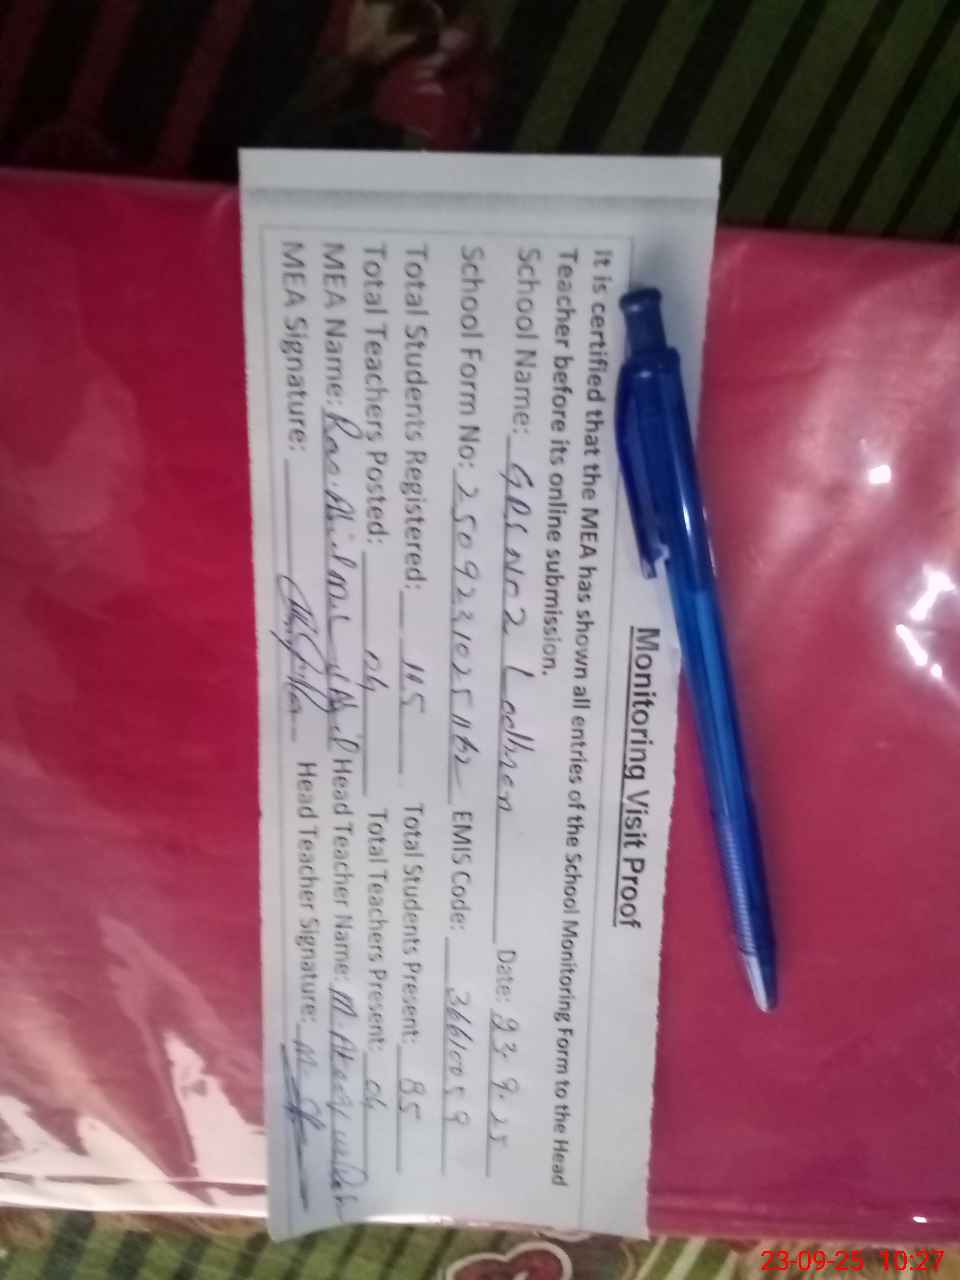 Monitoring Visit Proof
It is certified that the MEA has shown all entries of the School Monitoring Form to the Head
Teacher before its online submission.
School Name: GPS No 2 Lodhran Date: 23.9.25
School Form No: EMIS Code: 36610059
Total Students Registered: 115 Total Students Present: 85
Total Teachers Posted: 04 Total Teachers Present: 04
MEA Name: Rao Head Teacher Name: M.
MEA Signature: Head Teacher Signature:
23-09-25 10:27